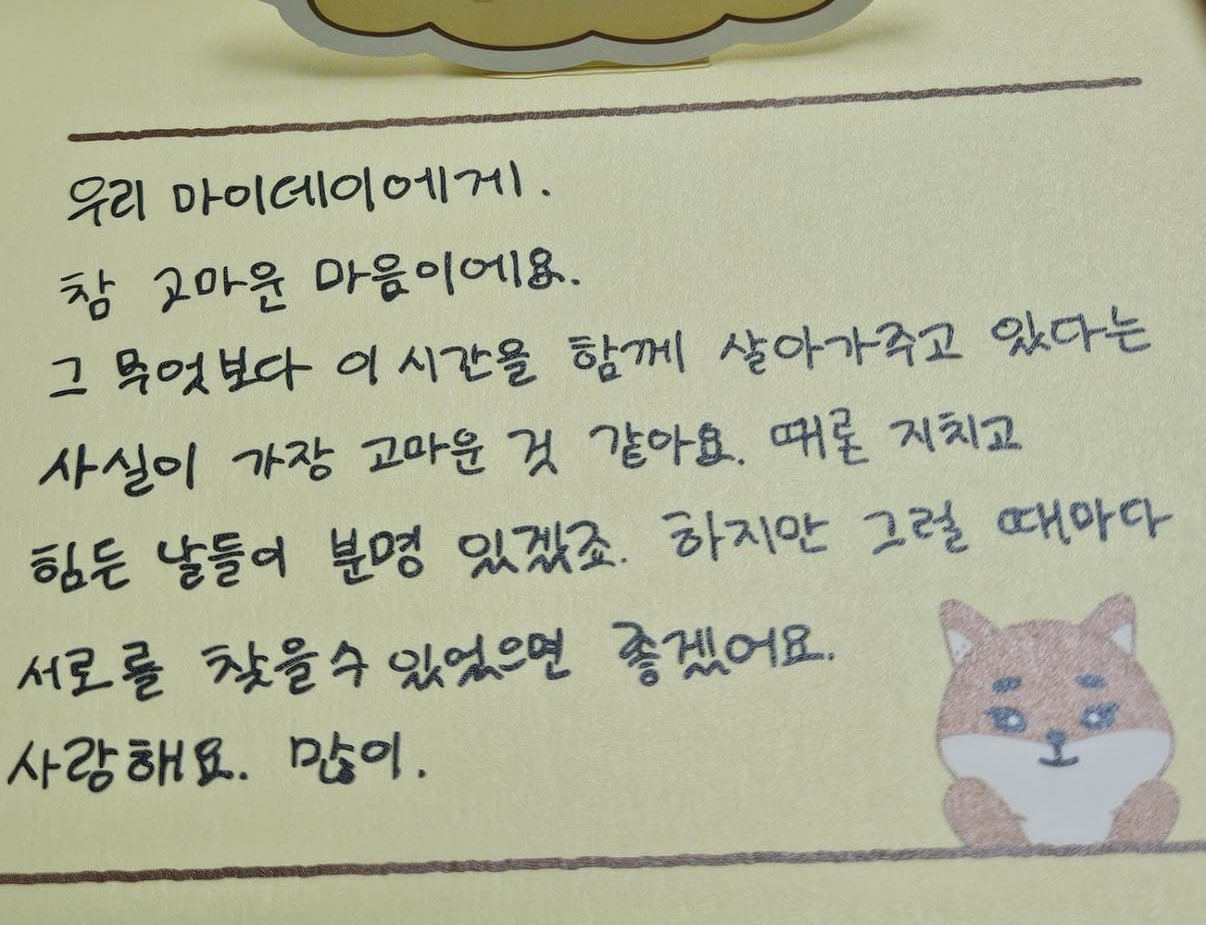 우리 마이데이에게.
참 고마운 마음이에요.
그 무엇보다 이 시간을 함께 살아가주고 있다는
사실이 가장 고마운 것 같아요. 때론 지치고
힘든 날들이 분명 있겠죠. 하지만 그럴 때마다
서로를 찾을 수 있었으면 좋겠어요.
사랑해요. 많이.